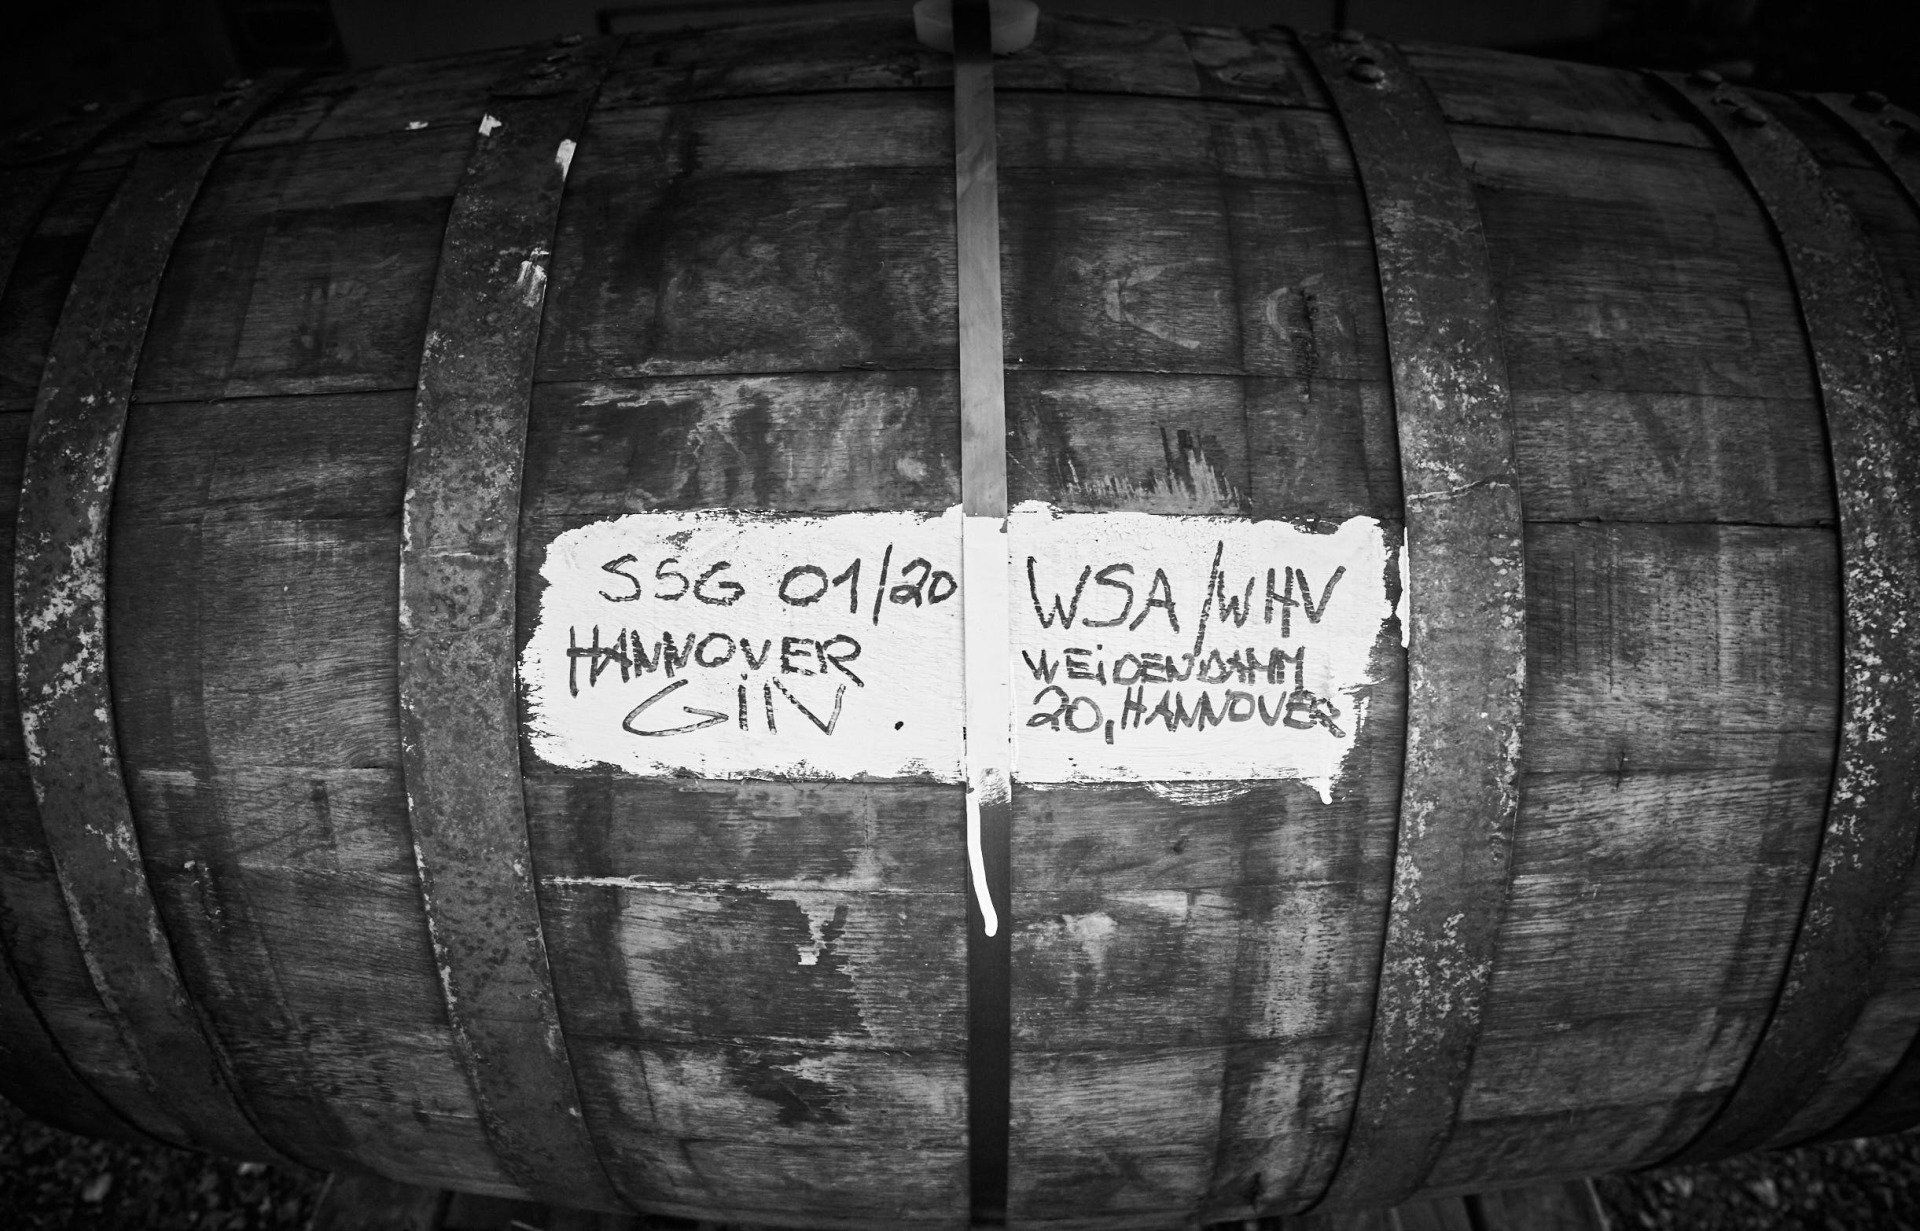 SSG 01/20
HANNOVER
GiN .
WSA/WHV
WEiDENDAMM
20, HANNOVER